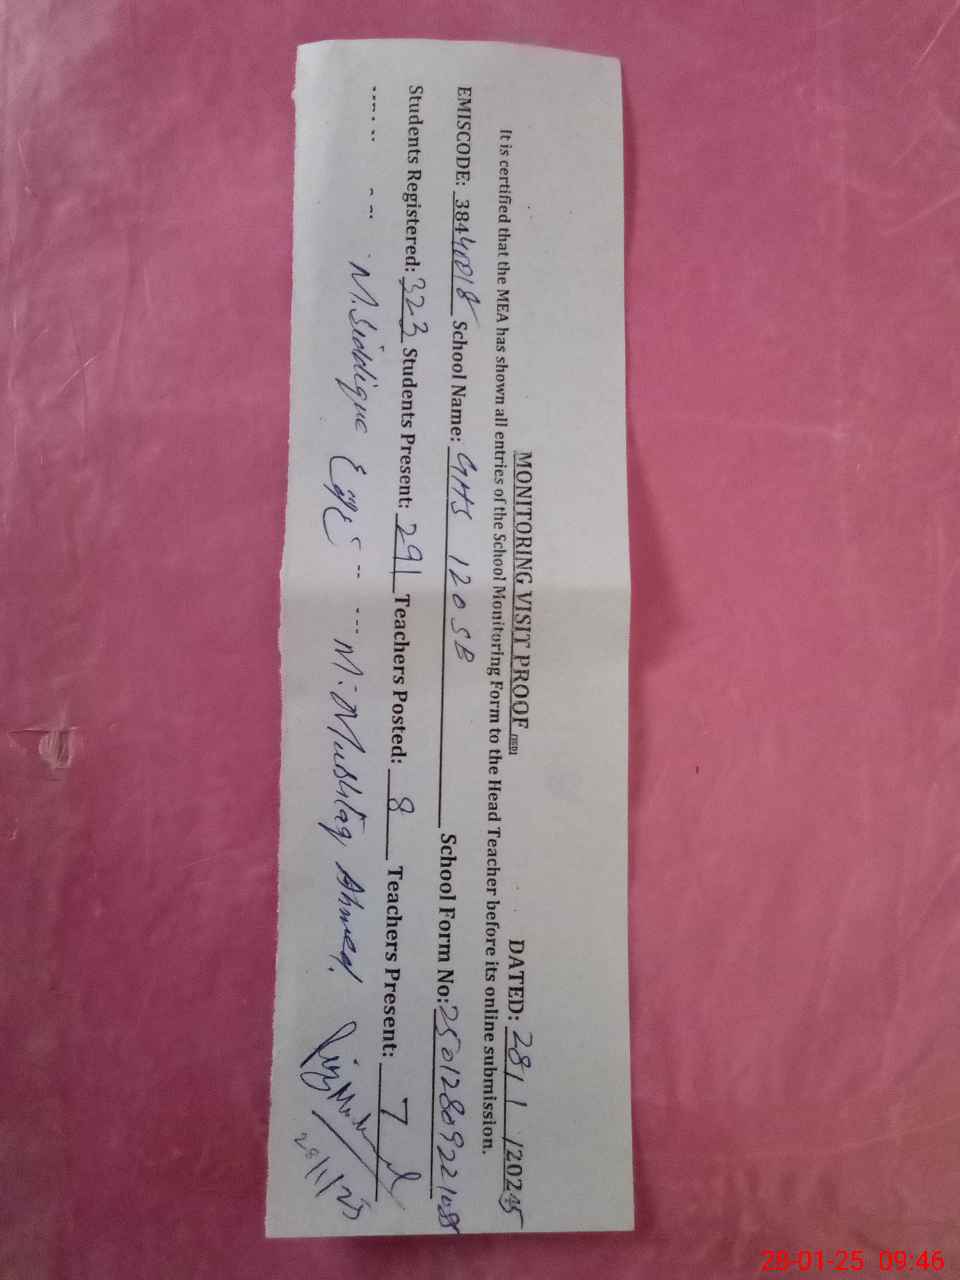 MONITORING VISIT PROOF DATED: 28/1/2025
It is certified that the MEA has shown all entries of the School Monitoring Form to the Head Teacher before its online submission.
EMISCODE: 38440018 School Name: GHS 120 SB School Form No: 250128092210
Students Registered: 323 Students Present: 291 Teachers Posted: 8 Teachers Present: 7
M. Siddique M. Mushtaq Ahmed.
28/1/25
28-01-25 09:46